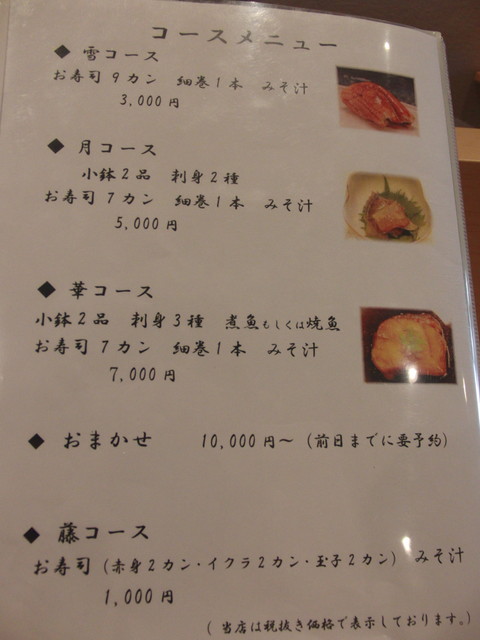 コースメニュー
◆ 雪コース
お寿司9カン 細巻1本 みそ汁
3,000円
◆ 月コース
小鉢2品 刺身2種
お寿司7カン 細巻1本 みそ汁
5,000円
◆ 華コース
小鉢2品 刺身3種 煮魚もしくは焼魚
お寿司7カン 細巻1本 みそ汁
7,000円
◆ おまかせ 10,000円～(前日までに要予約)
◆ 藤コース
お寿司(赤身2カン・イクラ2カン・玉子2カン) みそ汁
1,000円
(当店は税抜き価格で表示しております。)